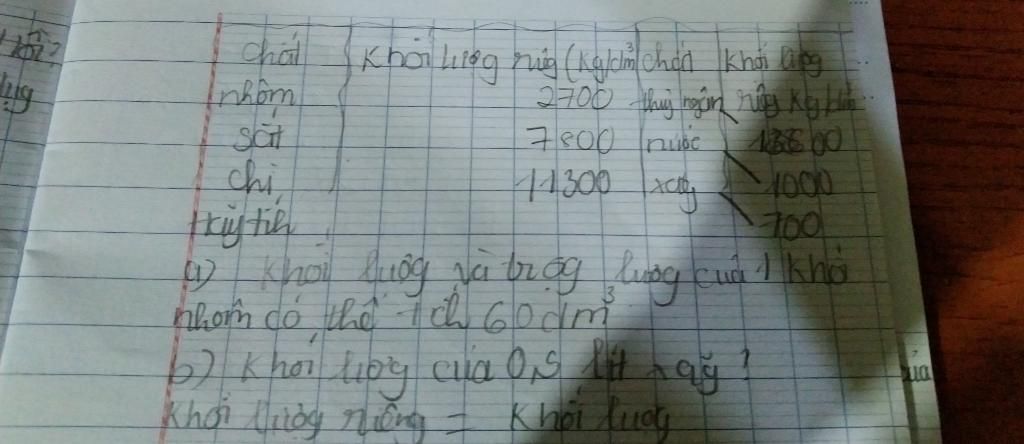 chất Khối lượng riêg (Kg/dm³) chất Khối lượg
nhôm 2700 thuỷ ngân riêg Kg/
sắt 7800 nước 13600
chì 11300 xăg 1000
700
a) Khối lượg và trọg lượg của 1 khối
nhôm có thể tích 60dm³
b) Khối lượg của 0,5 lít xăg?
Khối lượg riêng = Khối lượg
của